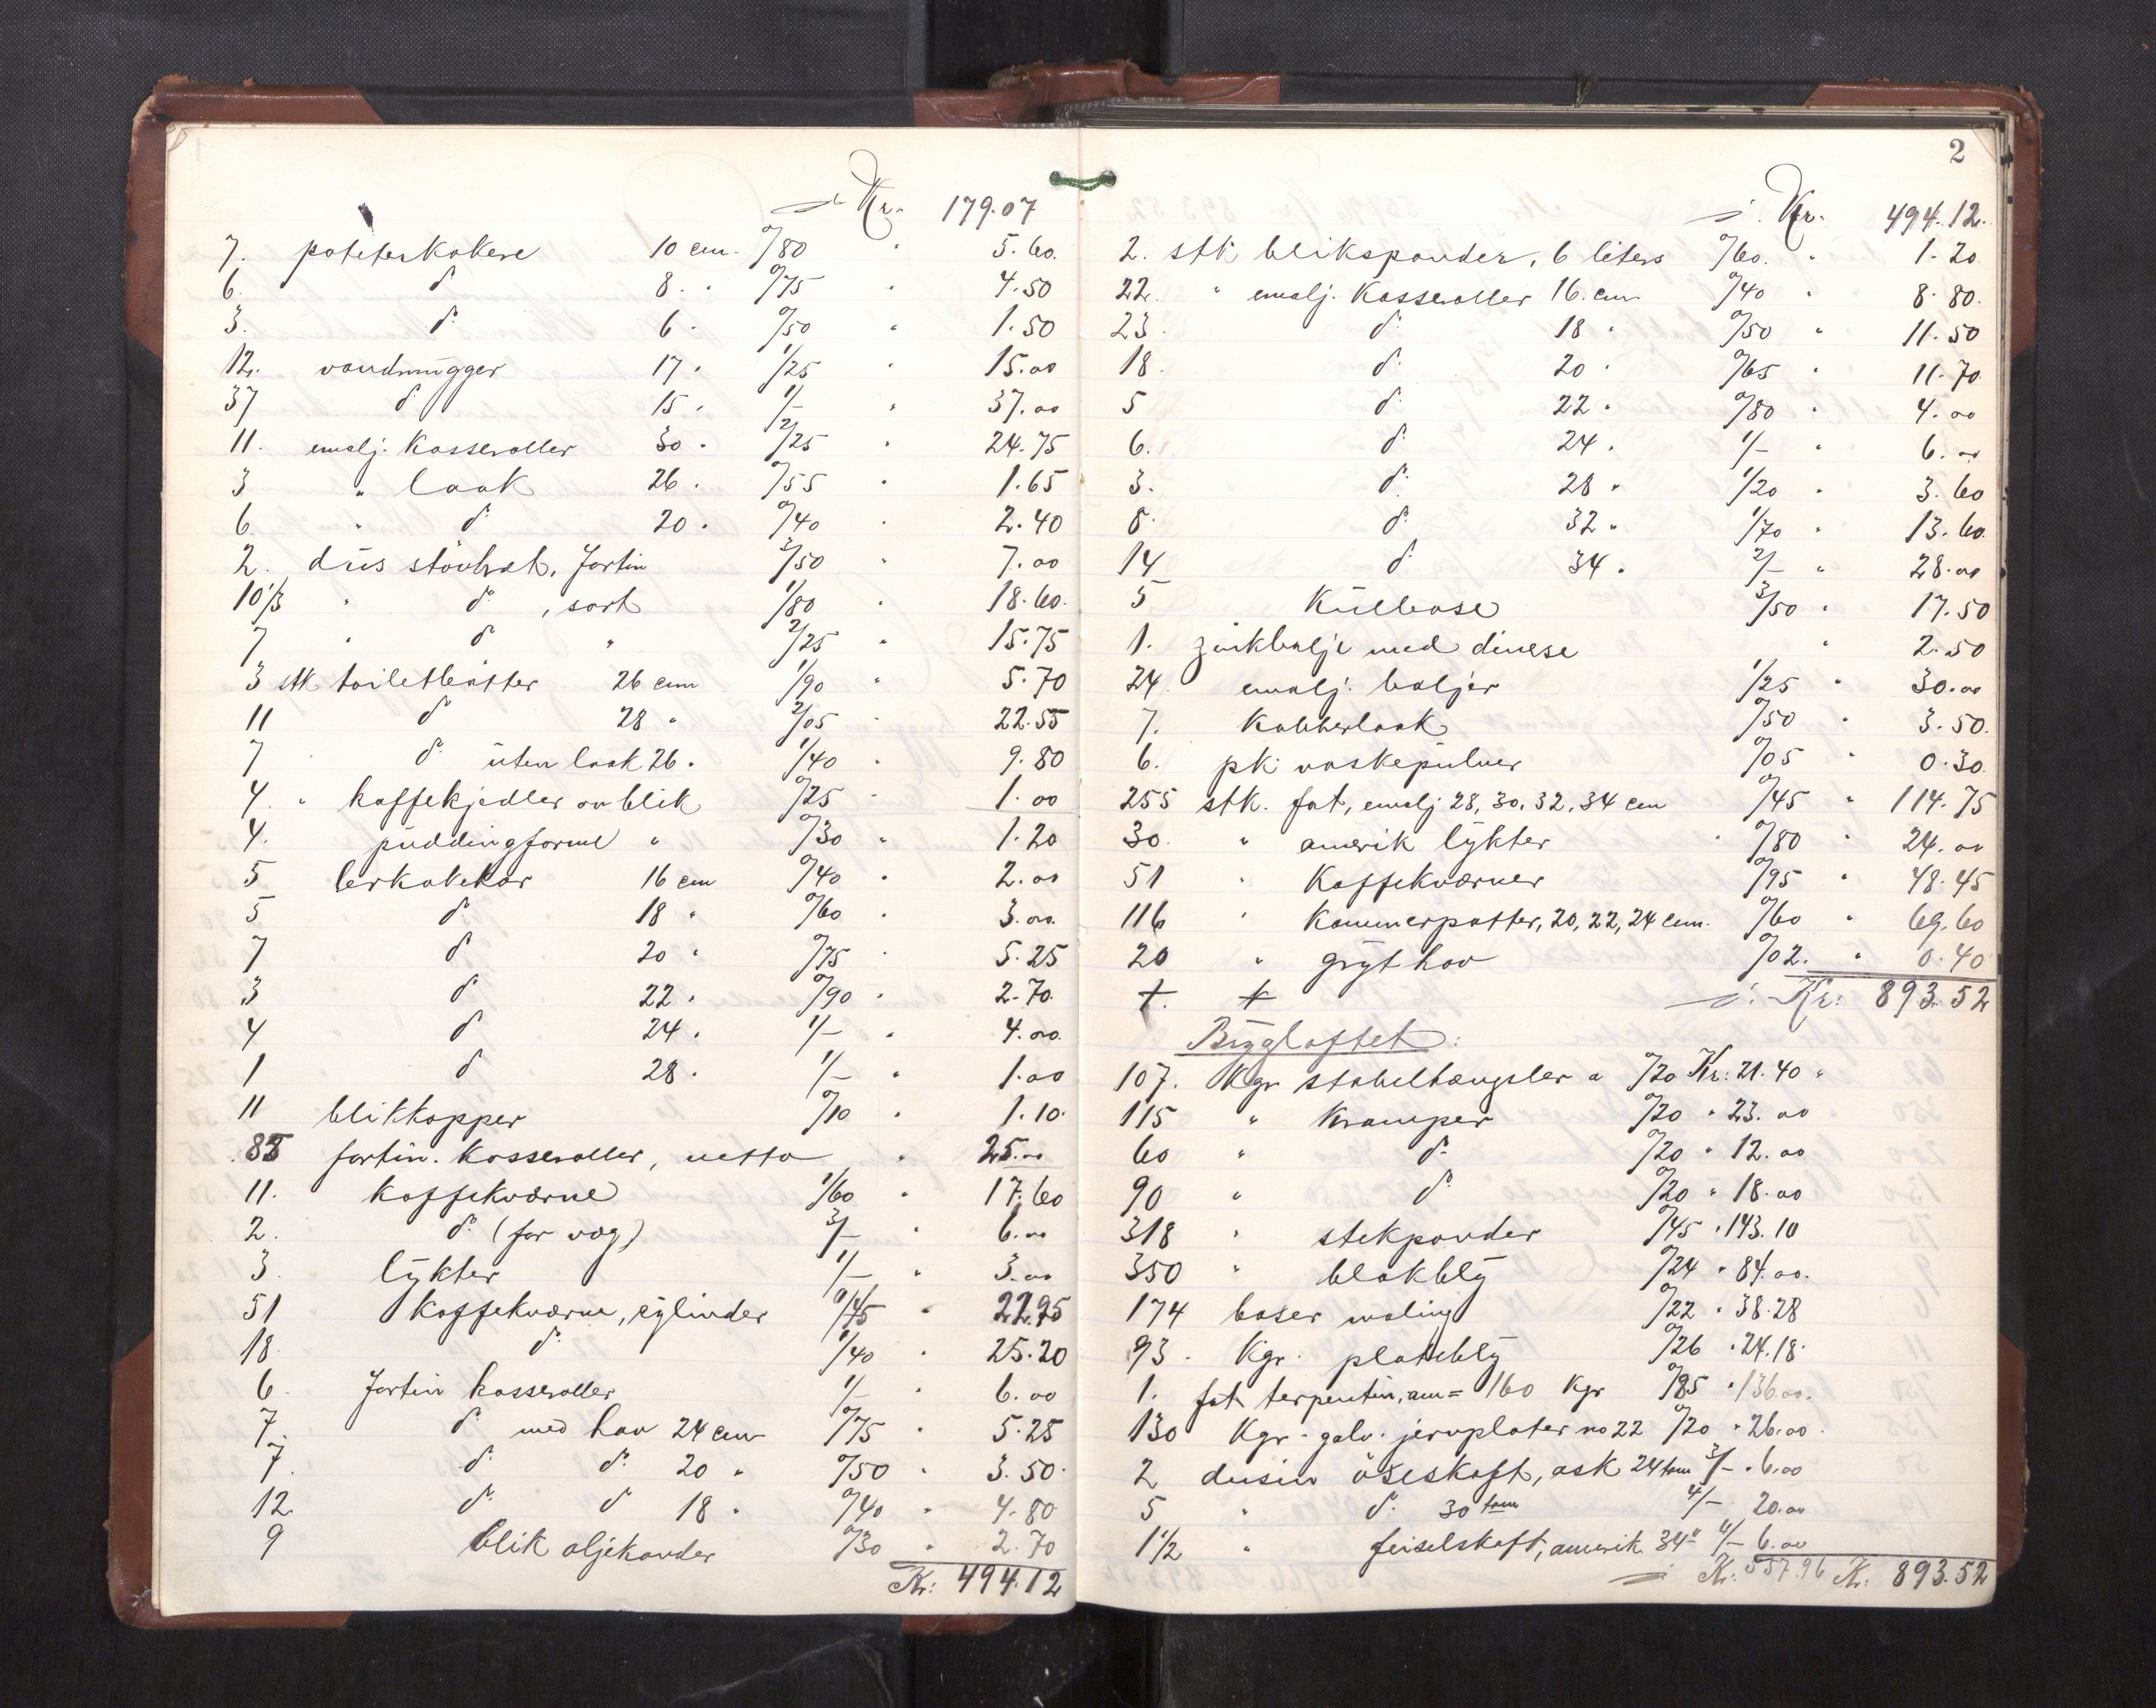 Kr. 179.07
7. poteterkokere 10 cm. 0/80 " 5.60.
6. do 8. " 0/75 " 4.50
3. do 6 " 0/50 " 1.50
12. vandmugger 17 " 1/25 " 15.00
37 do 15 " 1/- " 37.00
11. emalj. kasseroller 30 " 2/25 " 24.75
3 " laak 26 " 0/55 " 1.65
6 " do 20 " 0/40 " 2.40
2. dus støvbret, fortin 3/50 " 7.00
10 1/3 " do , sort 1/80 " 18.60.
7 " do " 2/25 " 15.75
3 stk toiletbøtter 26 cm 1/90 " 5.70
11 do 28 " 2/05 " 22.55
7 do uten laak 26 " 1/40 " 9.80
4. " kaffekjedler av blik 0/25 " 1.00
4. puddingforme " 0/30 " 1.20
5 lerkakekar 16 cm 0/40 " 2.00
5 do 18 " 0/60 " 3.00.
7 do 20 " 0/75 " 5.25
3 do 22 " 0/90 " 2.70.
4 do 24 " 1/- " 4.00.
1 do 28 " 1/- " 1.00
11 blikkopper 0/10 " 1.10.
fortin. kasseroller, netto " 25.00
11. kaffekværne 1/60 " 17.60
2. do (for væg) 3/- " 6.00
3. lykter 1/- " 3.00
51 kaffekværne, cylinder 0/45 " 22.95
18 do 1/40 " 25.20
6. fortin kasseroller 1/- " 6.00
7. do med hav 24 cm 0/75 " 5.25
7. do do 20 " 0/50 " 3.50.
12. do do 18 " 0/40 " 4.80
9 blik oljekander 0/30 " 2.70
Kr: 494.12
2
Kr. 494.12.
2. stk blikspander, 6 liters 0/60. " 1.20
22. " emalj. kasseroller 16. cm 0/40 " 8.80.
23. do 18 " 0/50 " 11.50
18. do 20 " 0/65 " 11.70
5 do 22 " 0/80 " 4.00
6. do 24 " 1/- " 6.00
3. do 28 " 1/20 " 3.60
8. do 32 " 1/70 " 13.60.
14 do 34 " 2/- " 28.00
5 Kulbose 3/50 " 17.50
1. zinkbalje med " 2.50
24 emalj. baljer 1/25 " 30.00
7. Kobberlaak 0/50 " 3.50.
6. pk. vaskepulver 0/05 " 0.30.
255 stk. fat, emalj 28, 30, 32, 34 cm 0/45 " 114.75
30. " amerik lykter 0/80 " 24.00
51 " Kaffekværner 0/95 " 48.45
116 " Kammerpotter, 20, 22, 24 cm. 0/60 " 69.60
20 " gryt hav 0/02. " 0.40
Kr: 893.52
Brygloftet:
107. Kgr stabelhængsler a 0/20 Kr: 21.40 "
115 " Kramper 0/20 " 23.00
60 " do 0/20 " 12.00
90 " do 0/20 " 18.00
318 " stekpander 0/45 " 143.10
350 " blokbly 0/24 " 84.00.
174 boser maling 0/22 " 38.28
93. Kgr. platebly 0/26 " 24.18.
1. fat terpentin, = 160 Kgr 0/85 " 136.00.
130 Kgr. galv. jernplater no 22 0/20 " 26.00.
2 dusin økseskaft, ask 24 tom 3/- " 6.00
5 " do 30 tom 4/- 20.00
1 1/2 " feiselskaft, amerik 34" 4/- 6.00
Kr. 557.96 Kr. 893.52